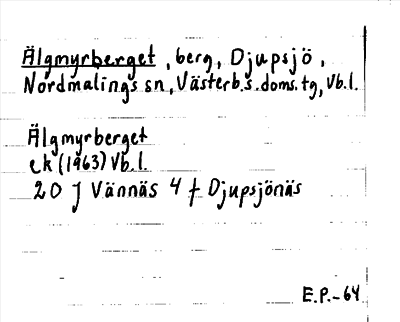 Älgmyrberget, berg, Djupsjö,
Nordmalings sn, Västerb.s.doms.tg, Vb.l.
Älgmyrberget
ek (1963) Vb.l.
20 J Vännäs 4 f Djupsjönäs
E.P.-64